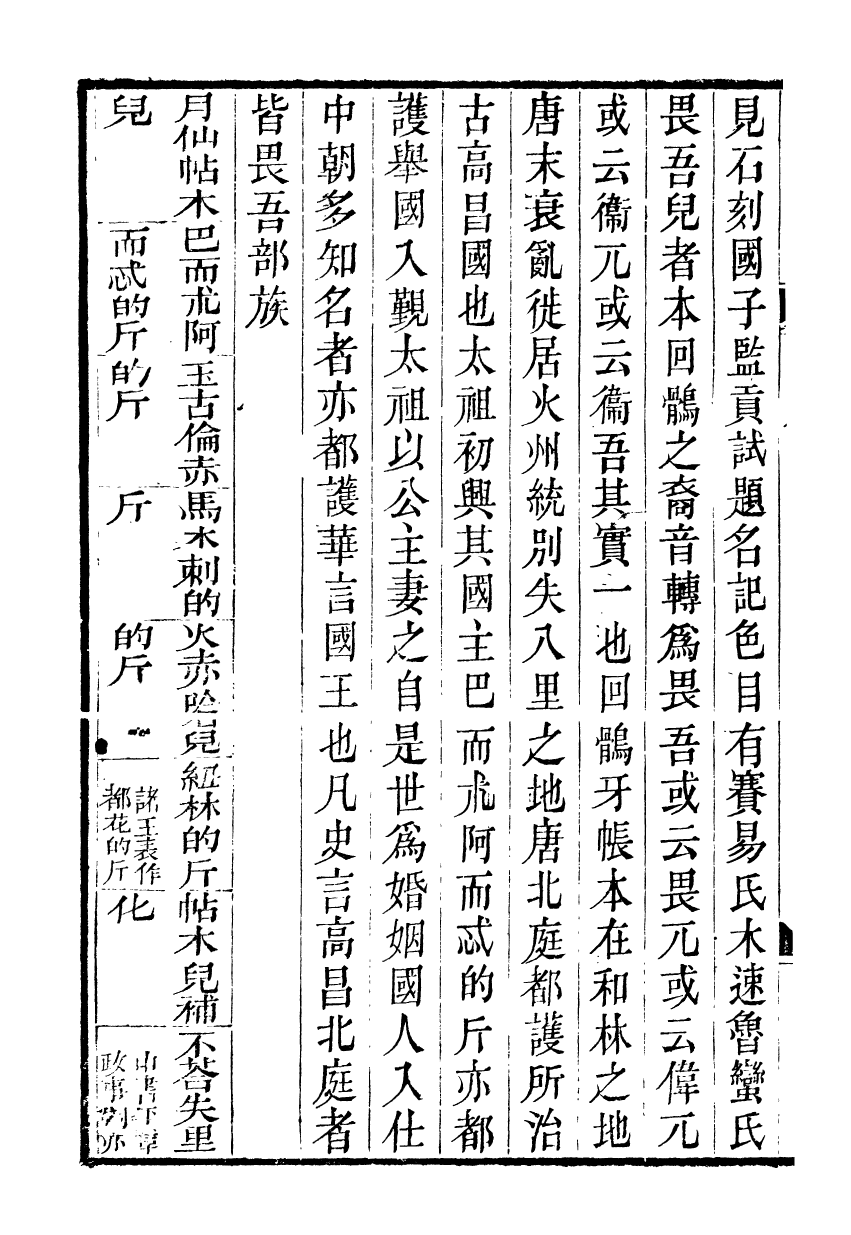 見石刻國子監貢試題名記色目有賽易氏木速魯蠻氏
畏吾兒者本回鶻之裔音轉爲畏吾或云畏兀或云偉兀
或云衞兀或云衞吾其實一也回鶻牙帳本在和林之地
唐末衰亂徙居火州統別失八里之地唐北庭都護所治
古高昌國也太祖初興其國主巴而朮阿而忒的斤亦都
護舉國入覲太祖以公主妻之自是世爲婚姻國人入仕
中朝多知名者亦都護華言國王也凡史言高昌北庭者
皆畏吾部族
月仙帖木
兒
巴而朮阿
而忒的斤
玉古倫赤
的斤
馬木剌的
斤
火赤哈兒
的斤
紐林的斤
諸王表作
都花的斤
帖木兒補
化
不荅失里
中書平章
政事列亦